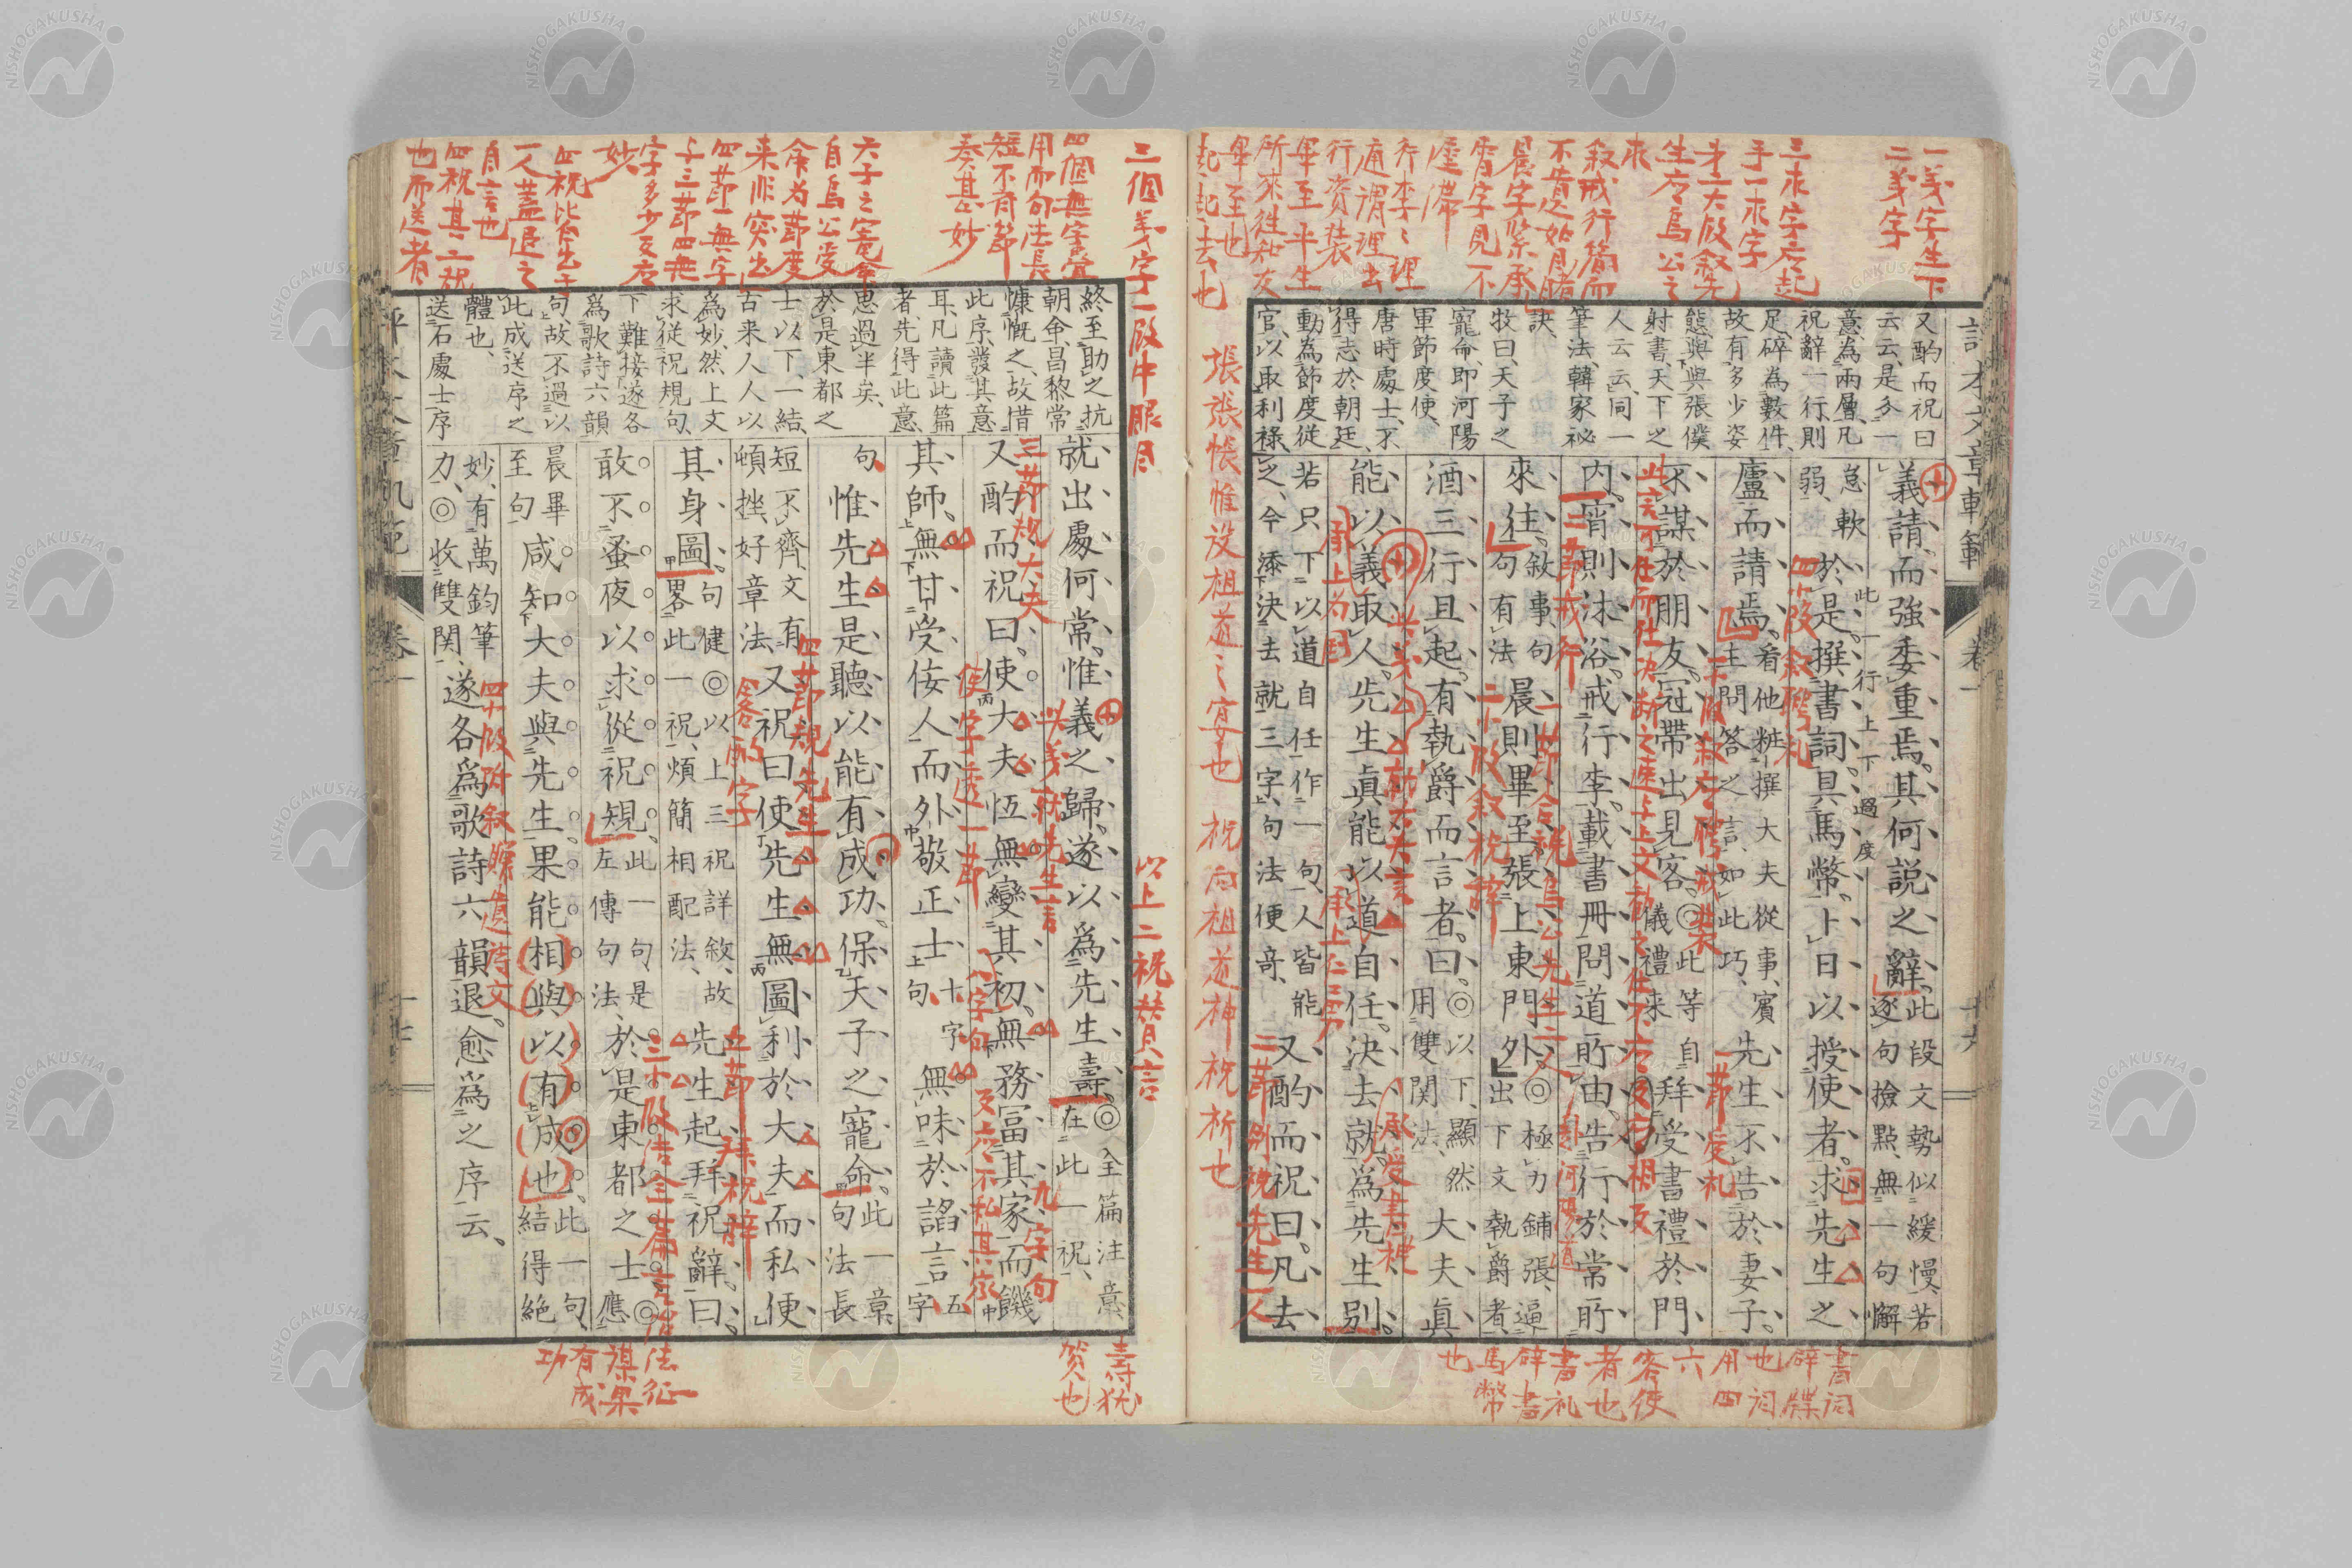 一義字生下
二義字
三求字応起
手一求字
才一大段叙先
生応烏公之
求
叙戒行簡而
不貴
晨字緊承
宵字見不
虛滯
行李ハ理
通謂理去
行資装
毎至半生
所來往知友
毎至也
起起去也
又酌而祝曰
云云、是分一
意為兩層、凡
祝辭一行、則
足碎為數件、
故有多少姿
態與與張僕
射書、天下之
人云云、同一
筆法、韓家祕
訣
牧曰、天子之
寵命、即河陽
軍節度使、
唐時處士、不
得志於朝廷、
動為節度從
官、以取利祿
義請而強委重焉其何説之辭此段文勢似緩慢、若
逐句撿點、無一句懈
怠軟
弱、於是撰書詞具馬幣卜日以授使者求先生之
此一行上下過度
廬而請焉看他粧撰大夫從事、賓
主問答之言、如此巧、先生不告於妻子
不謀於朋友冠帶出見客◎此等
儀禮來自拜受書禮於門
內宵則沐浴戒行李載書冊問道所由告行於常所
來往敘事句
句有法晨則畢至張上東門外◎極力鋪張、逼
出下文執爵者、
酒三行且起有執爵而言者曰◎以下、顯然
用雙関法、大夫眞
能以義取人先生眞能以道自任決去就為先生別
若只下以道自任作一句、人皆能
之、今添決去就三字、句法便竒、又酌而祝曰凡去
四小段叙聘礼
三小段叙応聘戒装
一節受礼
二節戒行
二小段叙祝辞
二節別祝先生一人
張張帳惟設祖道之宴也 祝向祖道神祝祈也
書詞
辞牒
也詞
用四
六
客使
者也
書礼
辞書
馬幣
也
評本文章軌範
卷一
十六
三個義字一段中眼目
以上二祝賛言
四個無字畳
用而句法長
短不斉節
奏甚妙
六子之寵命
自烏公受
命為節度
来非突出
四節一無字
三節四無
字多少反応
妙
四祝皆出于
一人蓋退之
自言也
四祝其二祝
也而送者
終至助之抗
朝命、昌黎常
慷慨之、故借
此序、發其意
耳、凡讀此篇
者、先得此意、
思過半矣、
於是東都之
士以下、一結
古来人人以
為妙、然上文
求從祝規句、
下難接遂各
為歌詩六韻
句故不過以
此成送序之
體也、
送石處士序
就出處何常惟義之歸遂以為先生壽◎全篇注意
在此一祝、
又酌而祝曰使大夫恆無變其初無務冨其家而饑
其師無甘受佞人而外敬正士十字
句無味於諂言五
字
句惟先生是聽以能有成功保天子之寵命此一章
句法長
短不齊、文有
頓挫、好章法、又祝曰使先生無圖利於大夫而私便
其身圖句健◎以上三祝詳敘、故
畧此一祝、煩簡相配法、先生起拜祝辭曰
敢不蚤夜以求從祝規此一句、是
左傳句法、於是東都之士◎應
晨畢
至句咸知大夫與先生果能相與以有成也此一句、
結得絶
妙、有萬鈞筆
力、◎收雙関、遂各為歌詩六韻退愈為之序云
三節規大夫
四節規先生
使字逹一節
客的字
五節拜祝辞
九字句
八字句
反応不私其家
四小段附叙贐遺詩文
壽猶
賀也
有成
功
評本文章軌範
卷一
十七
NISHOGAKUSHA